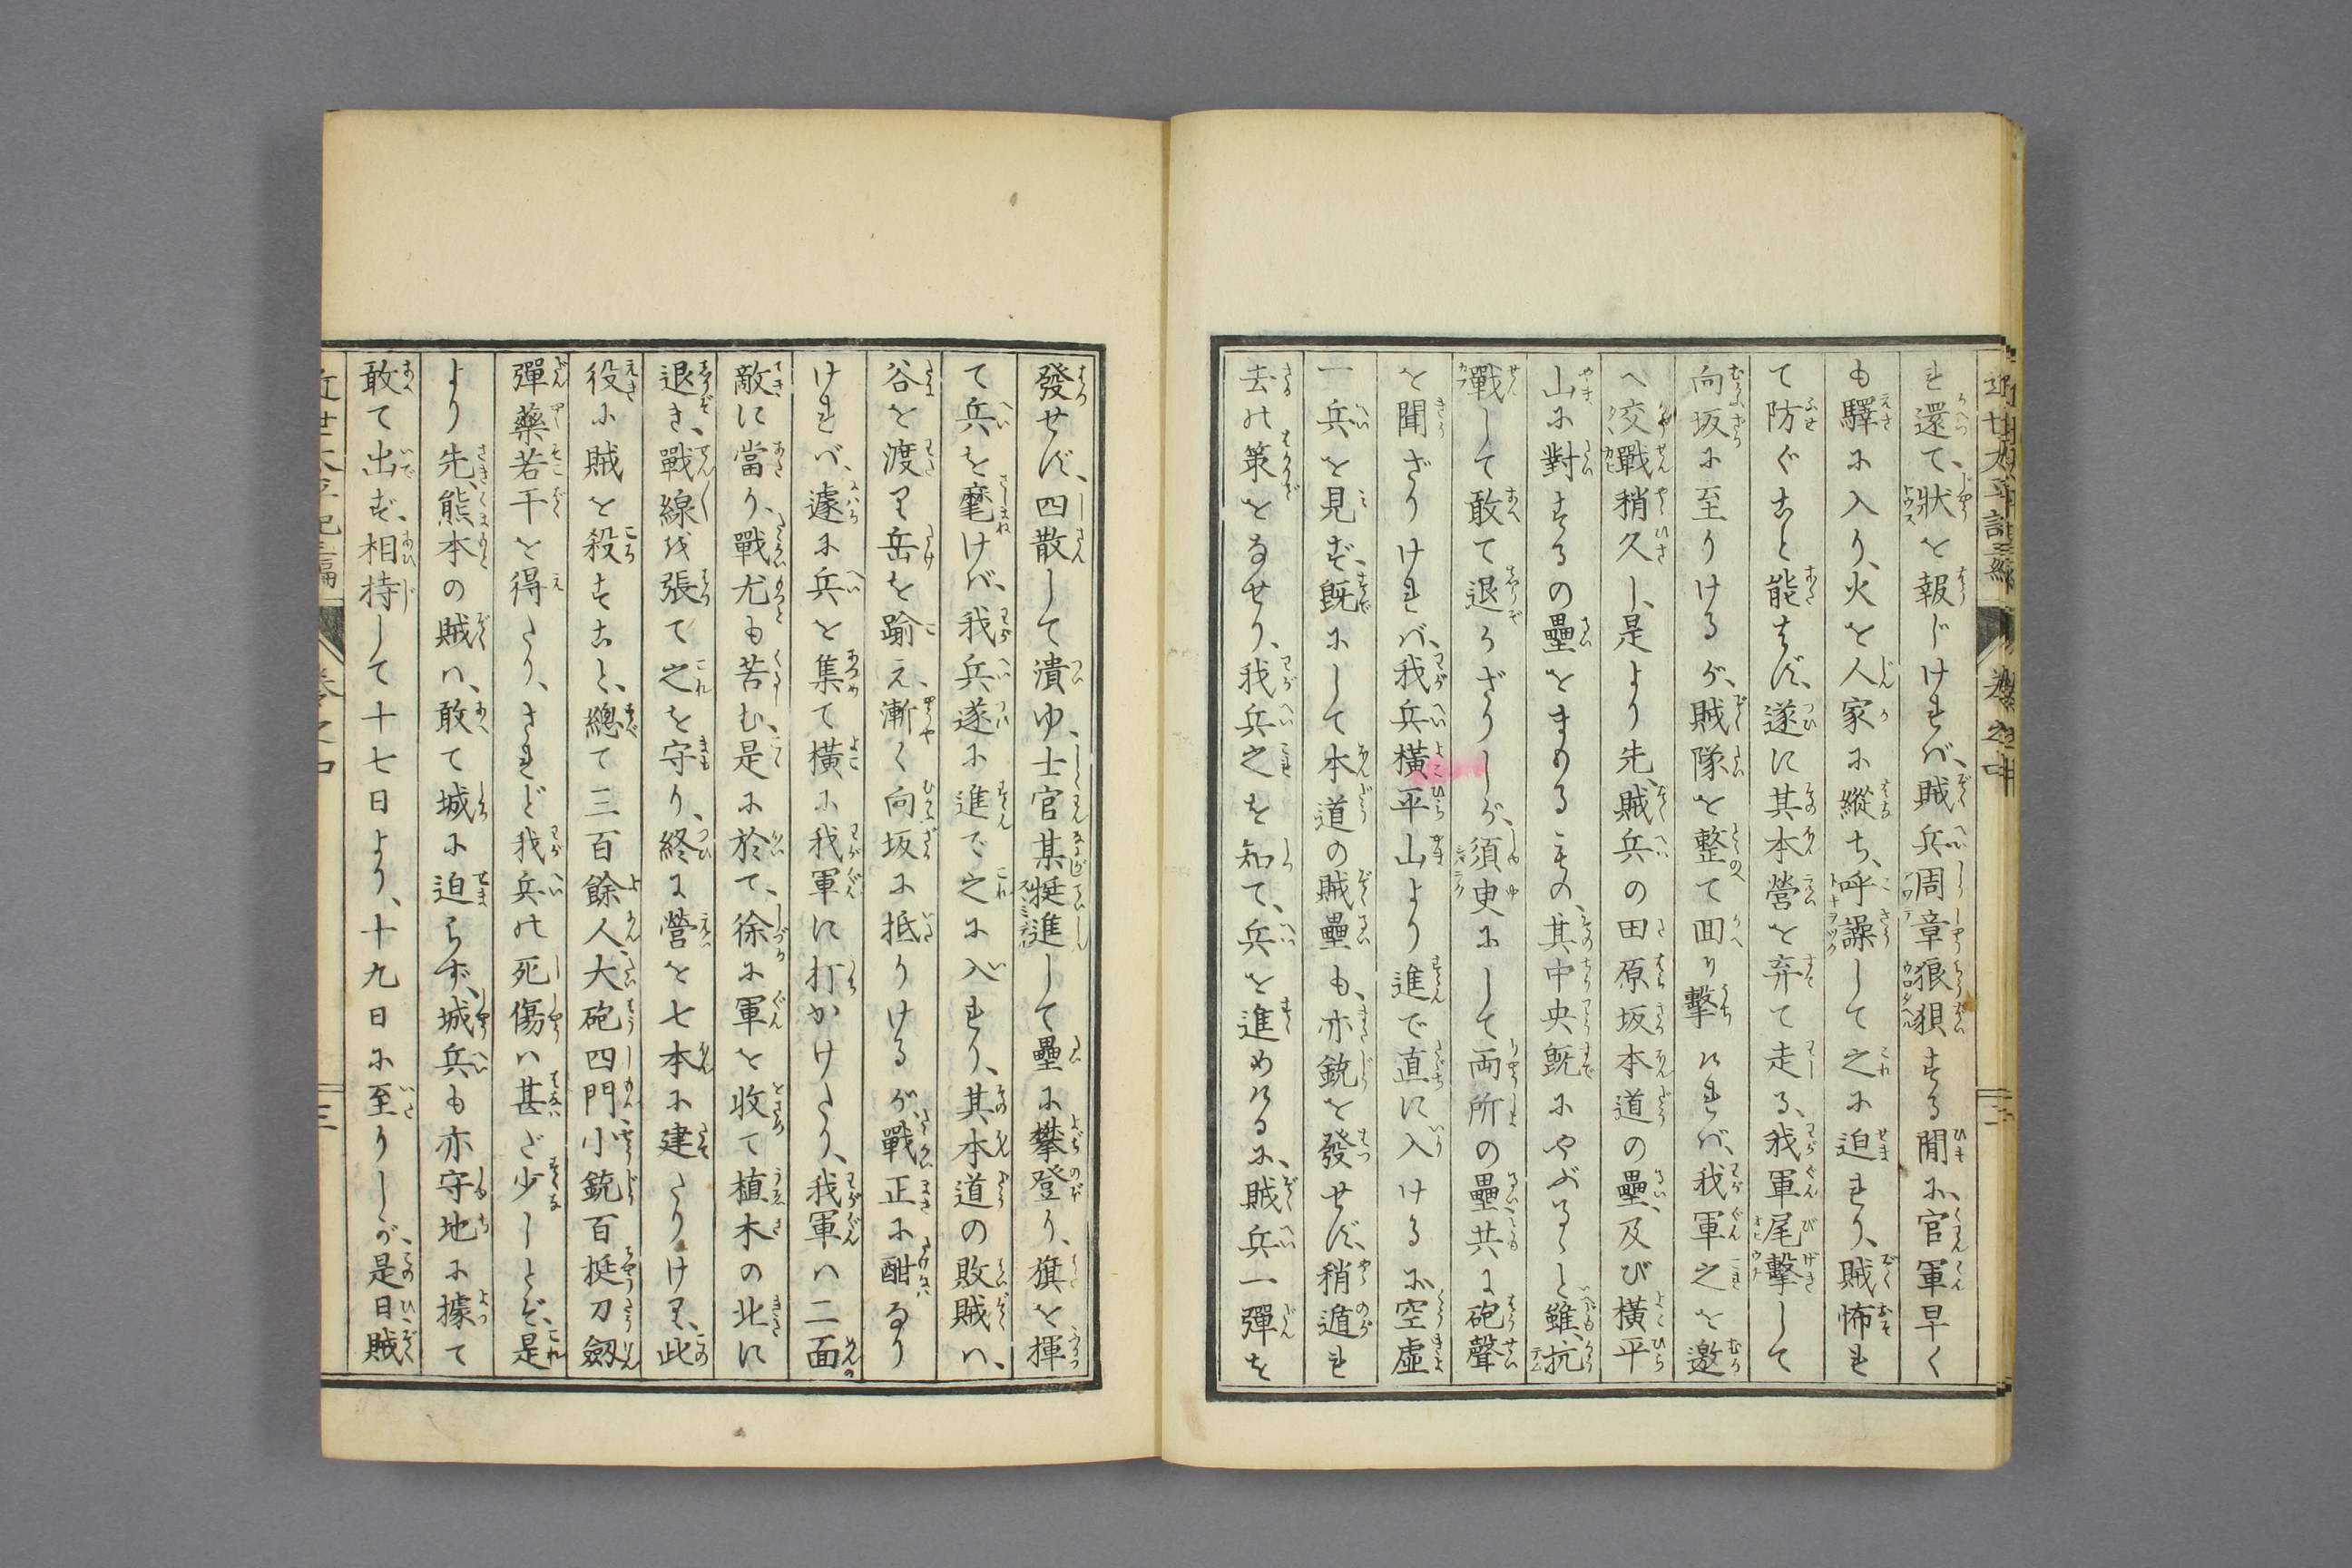 れ還て、狀を報じければ、賊兵周章狼狽する間に、官軍早く
も驛に入り、火を人家に縱ち、呼譟して之に迫れり、賊怖れ
て防ぐこと能はず、遂に其本營を弃て走る、我軍尾擊して
向坂に至りけるが、賊隊を整て回り擊ければ、我軍之を邀
へ交戰稍久し、是より先、賊兵の田原坂本道の壘、及び橫平
山に對するの壘をまもるもの、其中央既にやぶるゝと雖、抗
戰して敢て退かざりしが、須臾にして両所の壘共に砲聲
を聞ざりければ、我兵橫平山より進で直に入けるに空虛
一兵を見ず、既にして本道の賊壘も、亦銃を發せず、稍遁れ
去の策をなせり、我兵之を知て、兵を進めけるに、賊兵一彈を
發せず、四散して潰ゆ、士官某挺進して壘に攀登り、旗を揮
て兵を麾けば、我兵遂に進で之に入れり、其本道の敗賊は、
谷を渡り岳を踰え、漸く向坂に抵りけるが戰正に酣なり
ければ、遽に兵を集て橫に我軍に打かけたり、我軍は二面
敵に當り、戰尤も苦む、是に於て、徐に軍を收て植木の北に
退き、戰線を張て之を守り、終に營を七本に建たりけり、此
役に賊を殺すこと、總て三百餘人、大砲四門、小銃百挺刀劔
彈藥若干を得たり、されど我兵の死傷は甚だ少しとぞ、是
より先、熊本の賊は、敢て城に迫らず、城兵も亦守地に據て
敢て出ず、相持して十七日より、十九日に至りしが、是日賊
近世太平記三編 卷之四 三